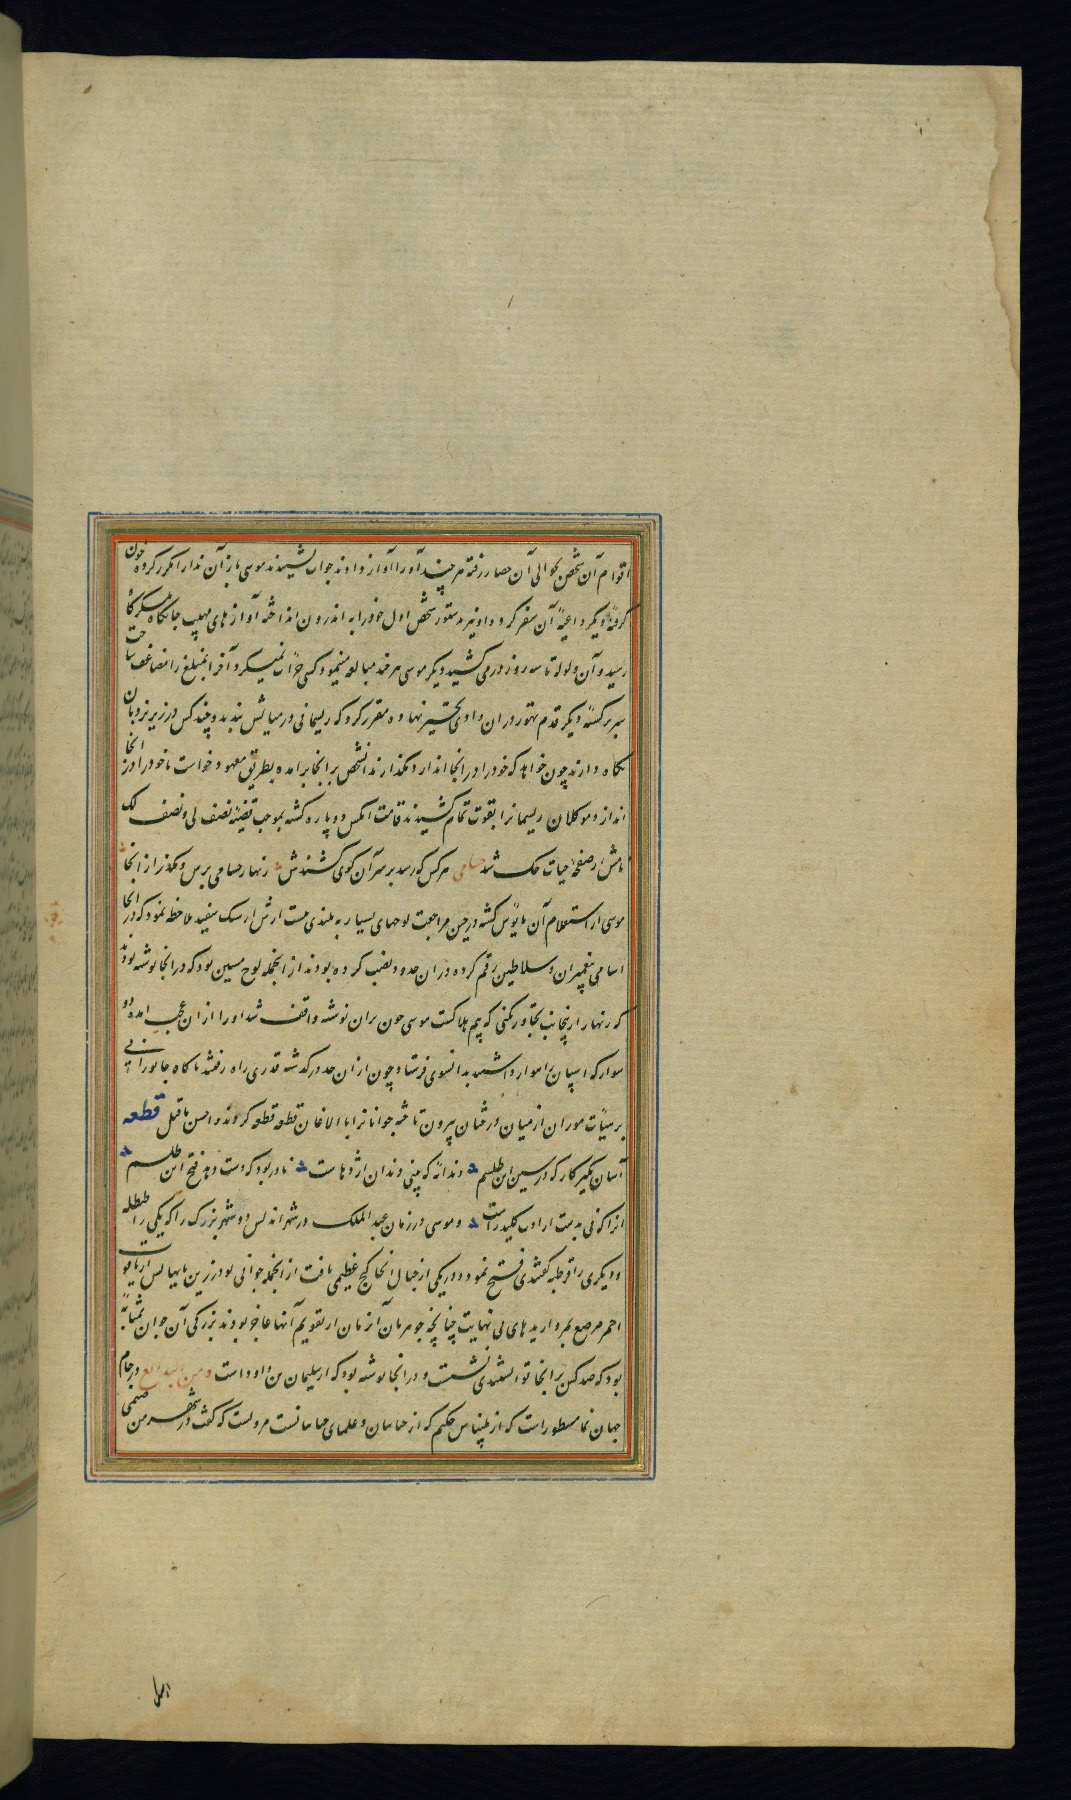 اقوام آن شخص بحوالی آن حصار رفته هر چند او را آواز دادند جواب نشنیدند موسی باز آن ندا را مکرر کرده خون
گرفتهٔ دیگر داعیهٔ آن سفر کرد و او نیز بدستور شخص اول خود را به اندرون انداخته آوازهای مهیب جانکاه بعسکرگاه
رسید و آن ولوله تا سه روز در می کشید دیگر موسی هر چند مبالغه مینمود کسی جرات نمیکرد آخر آن مبلغ را مضاعف ساخت
سر برگشتهٔ دیگر قدم تهور در آن وادی تحیر نهاده مقرر کرد که ریسمانی در میانش بندند و چند کس در زیر نردبان
نگاه دارند چون خواهد که خود را در آنجا اندازد نگذارند آن شخص بر آنجا برآمده بطریق معهود خواست تا خود را در آنجا
اندازد موکلان ریسمان را بقوت تمام کشیدند قامت آنکس دو پاره گشته بموجب قضیهٔ نصف لی و نصف لک
نامش از صفحهٔ حیات حک شد حسامی هر کس که رسد بر سر آن کوی کشندش زنهار حسامی بترس و مگذر از آنجا
موسی از استعلام آن مایوس گشته در حین مراجعت لوحهای بسیار به بلندی بیست ارش از سنگ سفید ملاحظه نمود که در آنجا
اسامی پیغمبران و سلاطین رقم کرده در آن حدود نصب کرده بودند از آنجمله لوح مسین بود که در آنجا نوشته بودند
که زنهار از اینجانب تجاوز نکنی که بیم هلاکست موسی چون بر آن نوشته واقف شد او را از آن عجب آمده دو
سوار که اسپان راهوار داشتند بدانسوی فرستاد چون از آن حد درگذشته قدری راه رفتند ناگاه جانورانی
بر هیأت موران از میان درختان بیرون تاخته جوانان را با الاغان قطعه قطعه کردند و احسن ما قیل قطعه
آسان مگیر کار که در سین این طلسم دندانه که بینی دندان اژدهاست نادر بود که دست دهد فتح این طلسم
آنرا که نی بدست از ادب کلید راست و موسی در زمان عبد الملک در شهر اندلس دو شهر بزرگ را که یکی را طلیطله
و دیگری را قرطبه گفتندی فتح نمود و در یکی از جبال آنجا گنج عظیمی یافت از آنجمله خوانی بود زرین پایهایش از یاقوت
احمر مرصع بمرواریدهای بی نهایت چنانچه جوهریان آن زمان از تقویم آنها عاجز بودند بزرگی آن خوان بمثابهٔ
بود که صد کس بر آنجا توانستندی نشست و در آنجا نوشته بود که از سلیمان بن داود است و من البدایع در جام
جهان نما مسطور است که از بلیناس حکیم که از حکیمان و علمای است مرویست که گفت در شهر من صنمی